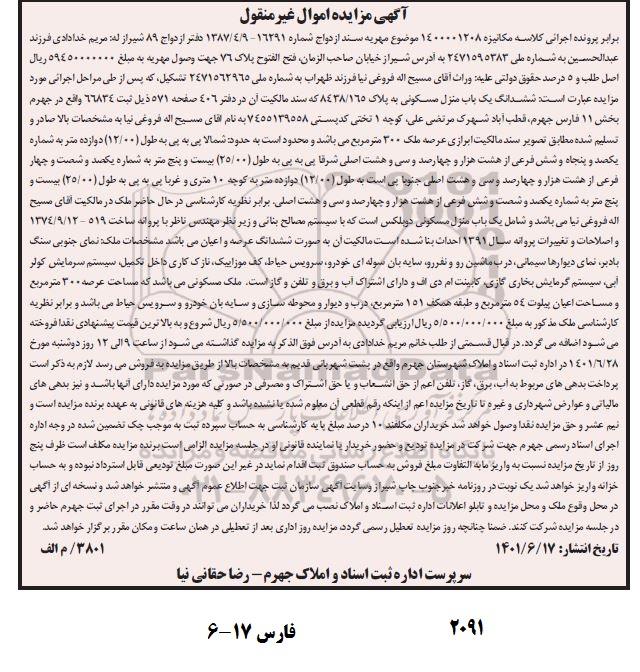 آگهی مزایده اموال غیرمنقول
برابر پرونده اجرائی کلاسه مکانیزه ۱۴۰۰۰۰۱۲۰۸ موضوع مهریه سند ازدواج شماره ۱۶۲۹۱- ۱۳۸۷/۴/۹ دفتر ازدواج ۸۹ شیراز له: مریم خدادادی فرزند
عبدالحسین به شماره ملی ۲۴۷۱۵۹۵۳۸۳ به آدرس شیراز خیابان صاحب الزمان، فتح الفتوح پلاک ۷۶ جهت وصول مهریه به مبلغ ۵۹۴۵۰۰۰۰۰۰۰ ریال
اصل طلب و ۵ درصد حقوق دولتی علیه: وراث آقای مسیح اله فروغی نیا فرزند ظهراب به شماره ملی ۲۴۷۱۵۶۲۹۶۵ تشکیل، که پس از طی مراحل اجرائی مورد
مزایده عبارت است: ششدانگ یک باب منزل مسکونی به پلاک ۸۴۳۸/۱۶۵ که سند مالکیت آن در دفتر ۴۰۶ صفحه ۵۷۱ ذیل ثبت ۶۶۸۳۴ واقع در جهرم
بخش ۱۱ فارس جهرم، قطب آباد شهرک مرتضی علی، کوچه ۱ تختی کدپستی ۷۴۵۵۱۳۹۵۵۸ به نام اقای مسیح اله فروغی نیا به مشخصات بالا صادر و
تسلیم شده مطابق تصویر سند مالکیت ابرازی عرصه ملک ۳۰۰ مترمربع می باشد و محدود است به حدود: شمالا پی به پی به طول (۱۲/۰۰) دوازده متر به شماره
یکصد و پنجاه و شش فرعی از هشت هزار و چهارصد و سی و هشت اصلی شرقا پی به پی به طول (۲۵/۰۰) بیست و پنج متر به شماره یکصد و شصت و چهار
فرعی از هشت هزار و چهارصد و سی و هشت اصلی جنوبا پی است به طول (۱۲/۰۰) دوازده متر به کوچه ۱۰ متری و غربا پی به پی به طول (۲۵/۰۰) بیست و
پنج متر به شماره یکصد و شصت و شش فرعی از هشت هزار و چهارصد و سی و هشت اصلی. برابر نظریه کارشناسی در حال حاضر ملک در مالکیت آقای مسیح
اله فروغی نیا می باشد و شامل یک باب منزل مسکونی دوبلکس است که با سیستم مصالح بنائی و زیر نظر مهندس ناظر با پروانه ساخت ۵۱۹ - ۱۳۷۴/۹/۱۲
و اصلاحات و تغییرات پروانه سال ۱۳۹۱ احداث بنا شده است مالکیت آن به صورت ششدانگ عرصه و اعیان می باشد مشخصات ملک: نمای جنوبی سنگ
بادبر، نمای دیوارها سیمانی، درب ماشین رو و نفررو، سایه بان سوله ای خودرو، سرویس حیاط، کف موزاییک، نازک کاری داخل تکمیل، سیستم سرمایش کولر
آبی، سیستم گرمایش بخاری گازی، کابینت ام دی اف و دارای اشتراک آب و برق و تلفن و گاز است. ملک مسکونی می باشد که مساحت عرصه ۳۰۰ مترمربع
و مساحت اعیان پیلوت ۵۴ مترمربع و طبقه همکف ۱۵۱ مترمربع، درب و دیوار و محوطه سازی و سایه بان خودرو و سرویس حیاط می باشد و برابر نظریه
کارشناسی ملک مذکور به مبلغ ۵/۵۰۰/۰۰۰/۰۰۰ ریال ارزیابی گردیده مزایده از مبلغ ۵/۵۰۰/۰۰۰/۰۰۰ ریال شروع و به بالا ترین قیمت پیشنهادی نقدا فروخته
می شود اضافه می گردد. در قبال قسمتی از طلب خانم مریم خدادادی به آدرس فوق الذکر به مزایده گذاشته می شود از ساعت ۹ الی ۱۲ روز دوشنبه مورخ
۱۴۰۱/۶/۲۸ در اداره ثبت اسناد و املاک شهرستان جهرم واقع در پشت شهربانی قدیم به مشخصات بالا از طریق مزایده به فروش می رسد لازم به ذکر است
پرداخت بدهی های مربوط به آب، برق، گاز، تلفن اعم از حق انشعاب و یا حق اشتراک و مصرفی در صورتی که مورد مزایده دارای آنها باشد و نیز بدهی های
مالیاتی و عوارض شهرداری و غیره تا تاریخ مزایده اعم از اینکه رقم قطعی آن معلوم شده یا نشده باشد و کلیه هزینه های قانونی به عهده برنده مزایده است و
نیم عشر و حق مزایده نقدا وصول خواهد شد خریداران مکلفند ۱۰ درصد مبلغ پایه کارشناسی به حساب سپرده ثبت به موجب چک تضمین شده در وجه اداره
اجرای اسناد رسمی جهرم جهت شرکت در مزایده تودیع و حضور خریدار یا نماینده قانونی او در جلسه مزایده الزامی است برنده مزایده مکلف است ظرف پنج
روز از تاریخ مزایده نسبت به واریز مابه التفاوت مبلغ فروش به حساب صندوق ثبت اقدام نماید در غیر این صورت مبلغ تودیعی قابل استرداد نبوده و به حساب
خزانه واریز خواهد شد یک نوبت در روزنامه خبرجنوب چاپ شیراز وسایت آگهی سازمان ثبت جهت اطلاع عموم آگهی و منتشر خواهد شد و نسخه ای از آگهی
در محل وقوع ملک و محل مزایده و تابلو اعلانات اداره ثبت اسناد و املاک نصب می گردد لذا خریداران می توانند در وقت مقرر در اجرای ثبت جهرم حاضر و
در جلسه مزایده شرکت کنند. ضمنا چنانچه روز مزایده تعطیل رسمی گردد، مزایده روز اداری بعد از تعطیلی در همان ساعت و مکان مقرر برگزار خواهد شد.
تاریخ انتشار: ۱۴۰۱/۶/۱۷ ۳۸۰۱/ م الف
سرپرست اداره ثبت اسناد و املاک جهرم - رضا حقانی نیا
۲۰۹۱ فارس ۱۷-۶